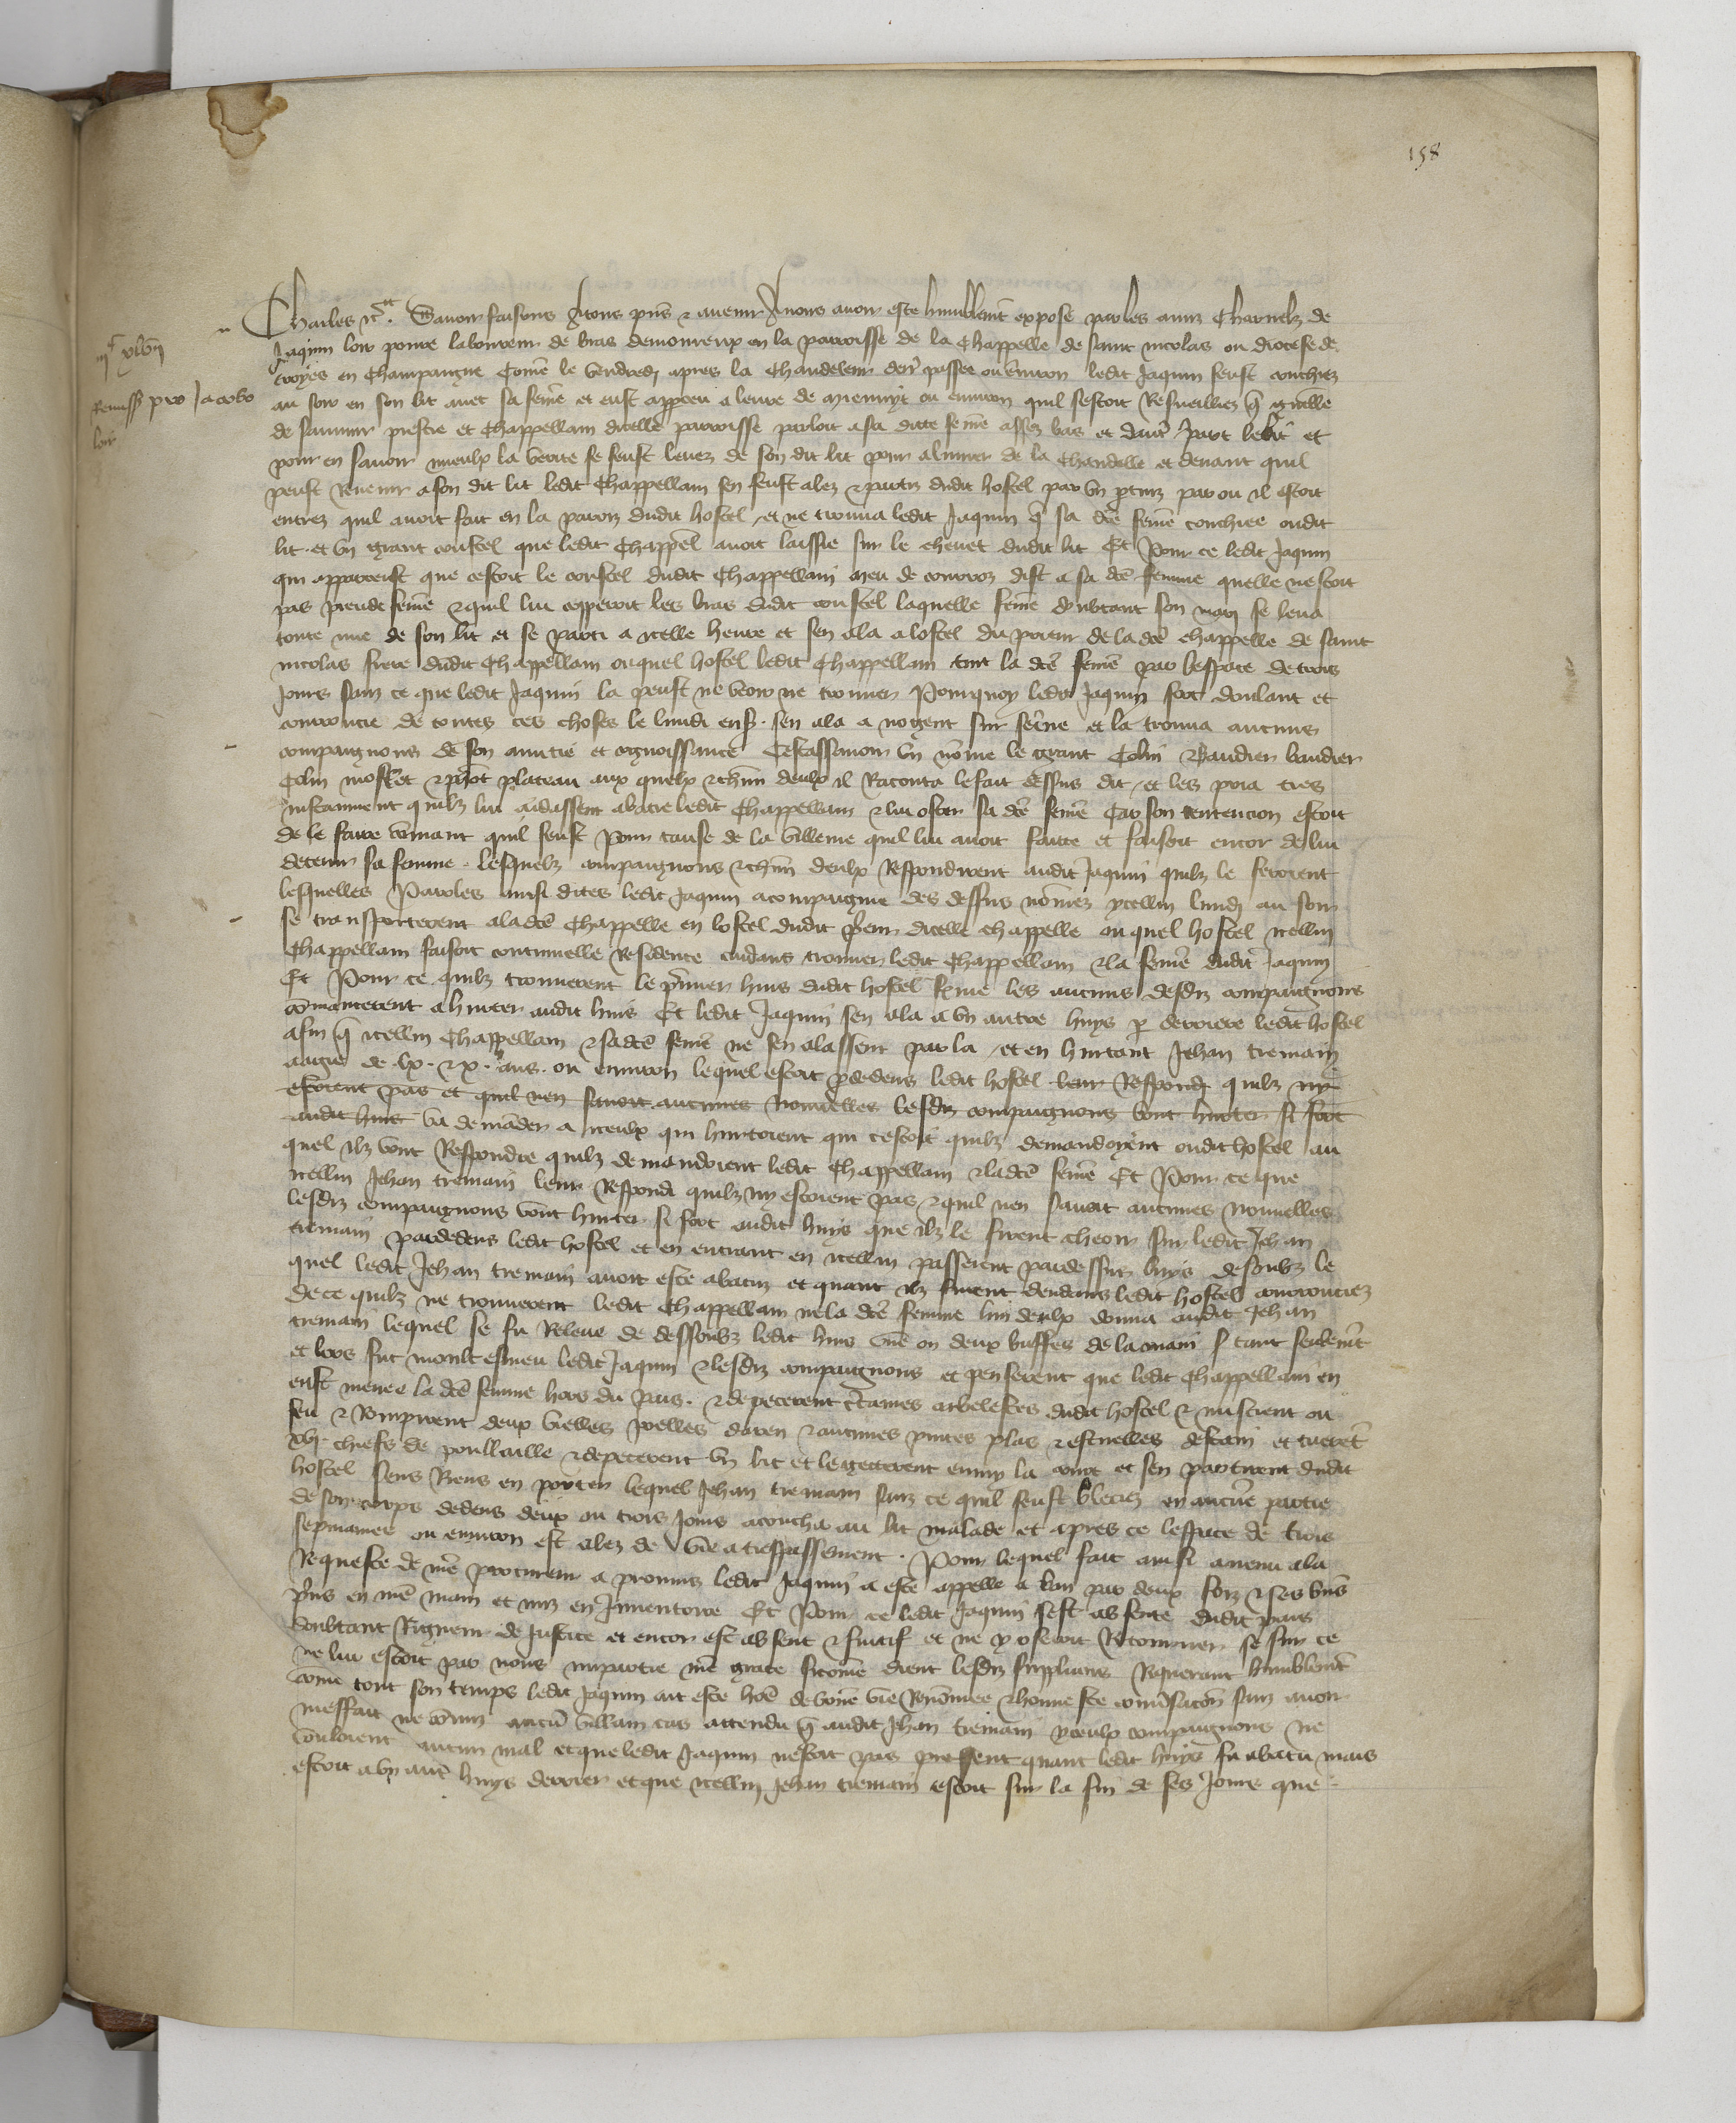 158
Charles etc. Savoir faisons a tous pns et avenir A nous avoir este humblemt expose par les amis charnelz de
Jaquin loir povre laboureur de bras demourant en la parroisse de la Chappelle de saint nicolas ou diocese de
troyes en Champaigne Come le vendredi apres la Chandeleur derr passee ou environ ledit Jaquin feust couchiez
au soir en son lit avec sa feme et eust apperceu a leure de mienuyt ou environ quil sestoit Resveilliez q
de saumur prestre et Chappellain dicelle parroisse parloit a sa dicte feme assez bas et dautr part le lit et
pour en savoir mieulx la verite se feust levez de son dit lit pour alumer de la chandelle et devant quil
peust Revenir a son dit lit ledit Chappellain sen feust alez et partiz dudit hostel par un ptuiz par ou il estoit
entrez quil avoit fait en la paroy dudit hostel et ne trouva ledit Jaquin q sa dce feme couchiee oudit
lit et un grant coustel que ledit Chappell avoit laissie sur le chevet dudit lit Et Pour ce ledit Jaquin
qui apparceust que cestoit le coustel dudit Chappellain meu de courroz dist a sa dce femme quelle nestoit
pas preude feme et quil lui copperoit les bras dudit coustel laquelle feme doubtant son mary se leva
toute nue de son lit et se parti a icelle heure et sen ala a lostel du prieur de la dce chappelle de saint
nicolas frere dudit Chappellain ouquel hostel ledit Chappellain tint la dce feme par lespace de trois
jours sanz ce que ledit Jaquin la peust ne veoir ne trouver Pourquoy ledit Jaquin fort doulant et
courroucie de toutes ces choses le lundi ens. sen ala a nogent sur seine et la trouva aucuns
compaignons de son amitie et cgnoissance Cestassavoir un nome le grant Colin Baudier baudier
Colin mostet et plateau aux quelx et chun deulx il Raconta le fait dessus dit et les pria tres
instamment quilz lui aidassent a batre ledit Chappellain et lui oster sa dce feme Car son entencion estoit
de le faire comant quil feust Pour cause de la villenie quil lui avoit faicte et faisoit encor de lui
detenir sa femme lesquelz compaignons et chun deulx Respondirent audit Jaquin quilz le feroient
lesquelles Paroles ainsi dites ledit Jaquin acompaigne des dessus nomez ycellui lundi au soir
se transporterent a la dce Chappelle en lostel dudit prieur dicelle chappelle ouquel hostel icellui
Chappellain faisoit continuelle Residence cuidans trouver ledit Chappellain et la feme dudit Jaquin
Et Pour ce quilz trouverent le pmier huis dudit hostel ferme les aucuns desdiz compaignons
comancerent a hurter audit huis Et ledit Jaquin sen ala a un autre huys p derriere ledit hostel
afin q icellui Chappellain et sa dce feme ne sen alassent par la et en hurtant Jehan tremain
aagie de lx et x ans ou environ lequel estoit p dedens ledit hostel leur Respondi quilz ny
estoient pas et quil nen savoit aucunes nouvelles lesdiz compaignons vont hurter si fort
audit huis va demander a iceulx qui hurtoient qui cestoit quilz demandoyent oudit hostel au
quel ilz vont Respondre quilz demandoient ledit Chappellain et la dce feme Et Pour ce que
icellui Jehan tremain leur Respondi quilz ny estoient pas et quil nen savoit aucunes nouvelles
lesdiz compaignons vont hurter si fort audit huys que ilz le firent cheoir sur ledit Jehan
tremain par dedens ledit hostel et en entrant en icellui passerent par dessus luys desoubz le
quel ledit Jehan tremain avoit este abatuz et quant ilz furent dendens ledit hostel courrouciez
de ce quilz ne trouverent ledit Chappellain ne la dce femme lun deulx donna audit Jehan
tremain lequel se fu Releve de dessoubz ledit huis une ou deux buffes de la main tant seulemt
et lors fut moult esmeu ledit Jaquin et lesdiz compaignons et penserent que ledit Chappellain en
eust menee la dce femme hors du pais et depecerent ctaines arbelestes dudit hostel et mistrent ou
feu et Rompirent deux vielles paelles darain et aucunes pintes plas et escuelles destain et tuerent
chiefs de poullaille et depecerent un lit et le getterent enmy la court et sen partirent dudit
hostel sens Riens en porter lequel Jehan tremain sanz ce quil feust bleciez en aucune partie
de son corps dedens deux ou trois jours acoucha au lit malade et apres ce lespace de trois
sepmaines ou environ est alez de vie a trespassement Pour lequel fait ainsi avenu a la
Requeste de nre procureur a prouvins ledit Jaquin a este appelle a ban par deux foiz et ses biens
prins en nre main et mis en Inventoire Et Pour ce ledit Jaquin sest absente dudit pais
doubtant Rigueur de Justice et encor est absent et fuitif et ne y oseroit Retourner se sur ce
ne lui estoit par nous impartie nre grace sicome dient lesdiz supplians Requerant humblemt
come tout son temps ledit Jaquin ait este home de bone vie Renomee et honneste conversacon sanz avoir
meffait ne comis aucun villain cas attendu q audit Jehan tremain yceulx compaignons ne
vouloient aucun mal et que ledit Jaquin nestoit pas present quant ledit huys fu abatu mais
estoit a un autr huys derrier et que icellui Jehan tremain estoit sur la fin de ses Jours que
Remissio pro Jacobo
loir